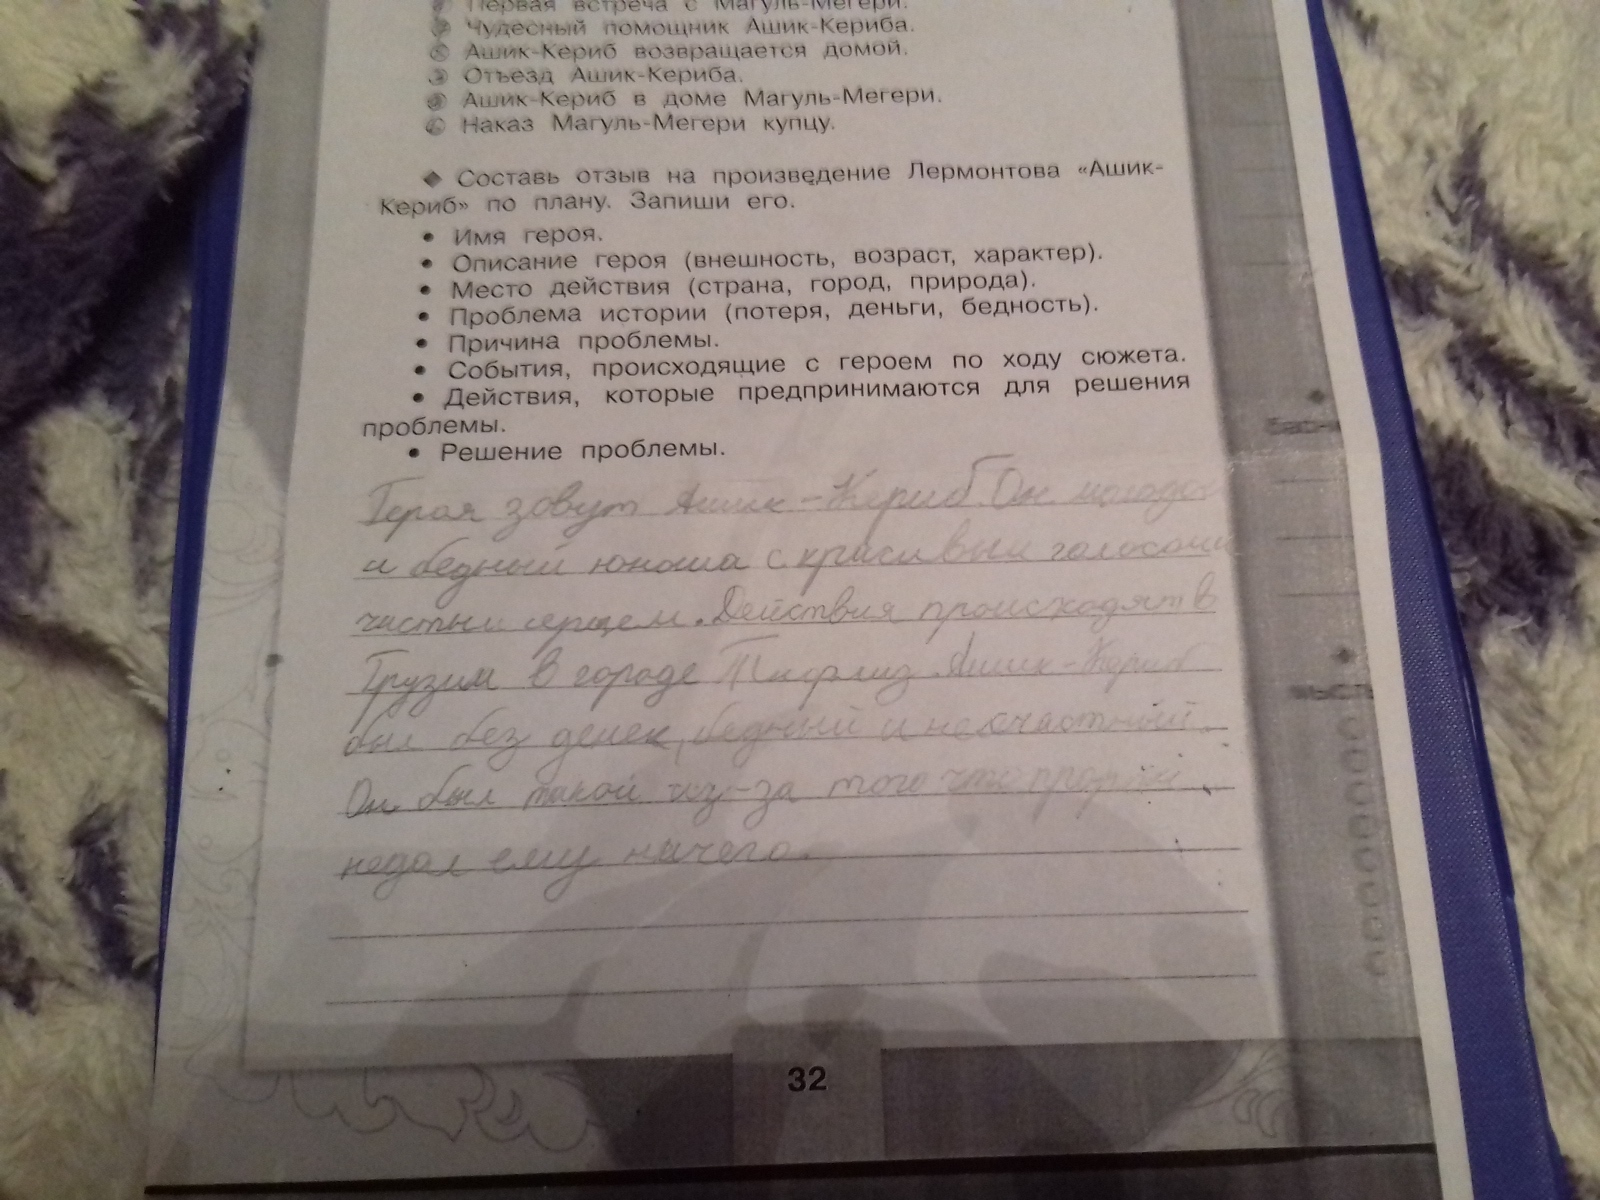 Первая встреча с Магуль-Мегери.
Чудесный помощник Ашик-Кериба.
Ашик-Кериб возвращается домой.
Отъезд Ашик-Кериба.
Ашик-Кериб в доме Магуль-Мегери.
Наказ Магуль-Мегери купцу.
◆ Составь отзыв на произведение Лермонтова «Ашик-
Кериб» по плану. Запиши его.
• Имя героя.
• Описание героя (внешность, возраст, характер).
• Место действия (страна, город, природа).
• Проблема истории (потеря, деньги, бедность).
• Причина проблемы.
• События, происходящие с героем по ходу сюжета.
• Действия, которые предпринимаются для решения
проблемы.
• Решение проблемы.
Героя зовут Ашик-Кериб. Он молодой
и бедный юноша с красивым голосом и
чистым серцем. Действия происходят в
Грузии в городе Тифлиз. Ашик-Кериб
был без денек, бедный и несчастный.
Он был такой из-за того что пророк
недал ему ничего.
32